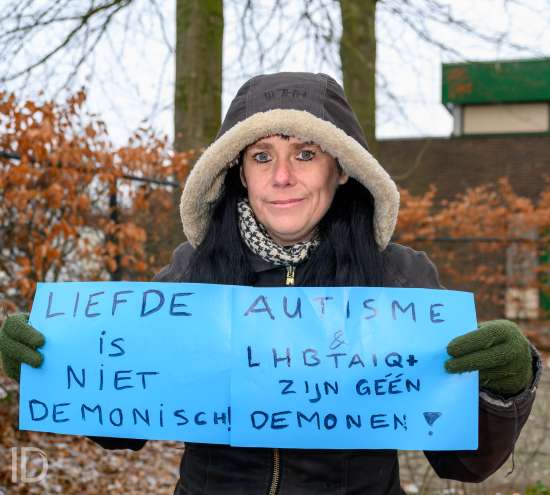 LIEFDE
iS
NiET
DEMONiSCH!
AUTISME
&
LHBTAIQ+
ZIJN GEÉN
DEMONEN!
ID